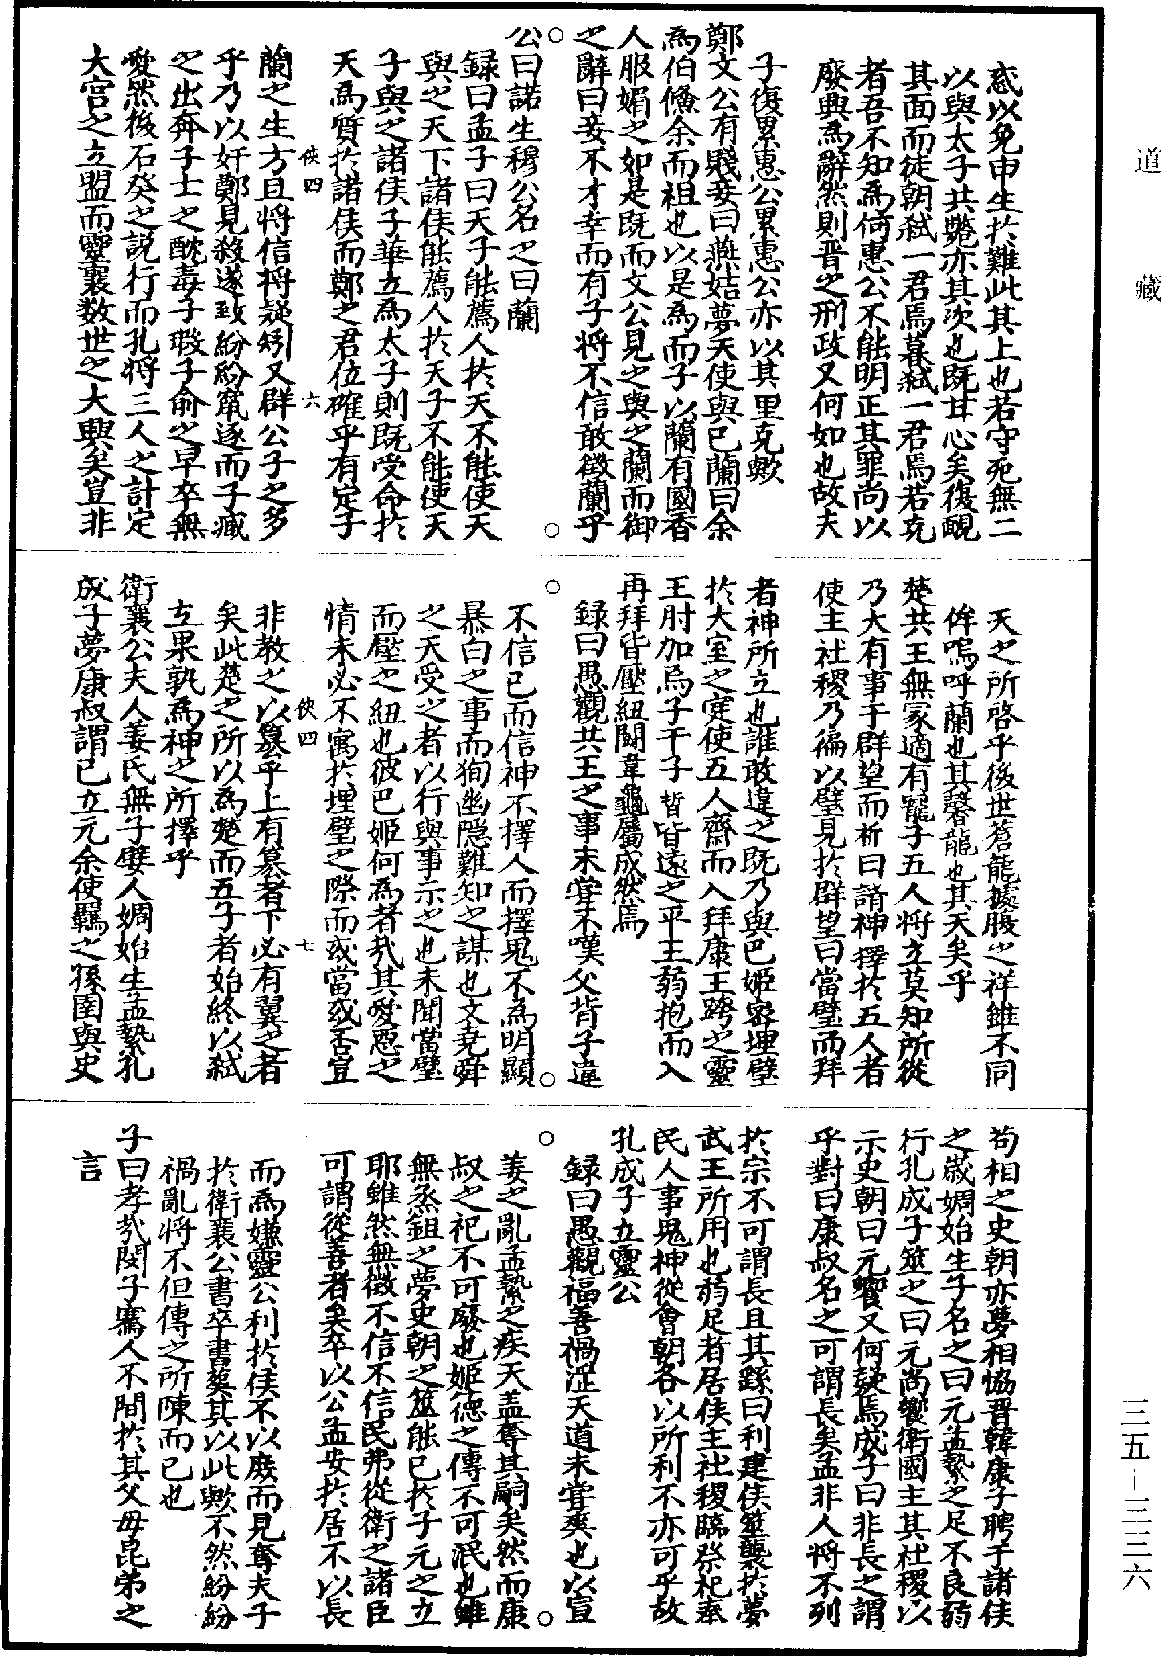 惑以免申生於難此其上也若守死無二
以與太子共斃亦其次也既甘心矣復靦
其面而徒朝弑一君焉暮弑一君焉若克
者吾不知為何惠公不能明正其罪尚以
廢興為辭然則晋之刑政又何如也故夫
子復累惠公累惠公亦以其里克歟
鄭文公有賤妾曰燕姞夢天使與己蘭曰余
為伯鯈余而祖也以是為而子以蘭有國香
人服媚之如是既而文公見之與之蘭而御
之辭曰妾不才幸而有子將不信敢徵蘭乎
公曰諾生穆公名之曰蘭
録曰孟子曰天子能薦人於天不能使天
與之天下諸侯能薦人於天子不能使天
子與之諸侯子華立為太子則既受命於
天為質於諸侯而鄭之君位確乎有定子
俠四 六
蘭之生方且將信將疑矧又群公子之多
乎乃以奸鄭見殺遂致紛紛竄逐而子臧
之出奔子士之酖毒子瑕子俞之早卒無
愛然後石癸之説行而孔將三人之計定
大宫之立盟而靈襄数世之大興矣豈非
天之所啓乎後世蒼龍據腹之祥雖不同
侔嗚呼蘭也其馨龍也其天矣乎
楚共王無冢適有寵子五人將立莫知所從
乃大有事于群望而祈曰請神擇於五人者
使主社稷乃徧以璧見於群望曰當璧而拜
者神所立也誰敢違之既乃與巴姬密埋璧
於大室之庭使五人齋而入拜康王跨之靈
王肘加焉子干子晳皆遠之平王弱抱而入
再拜皆壓紐鬭韋龜屬成然焉
録曰愚觀共王之事未嘗不嘆父背子違
不信已而信神不擇人而擇鬼不為明顯
暴白之事而狥幽隱難知之謀也文堯舜
之天受之者以行與事示之也未聞當璧
而壓之紐也彼巴姬何為者哉其愛惡之
情未必不寓於埋璧之際而或當或否豈
俠四 七
非教之以篡乎上有篡者下必有翼之者
矣此楚之所以為楚而五子者始終以弑
立果孰為神之所擇乎
衛襄公夫人姜氏無子嬖人婤姶生孟縶孔
成子夢康叔謂已立元余使羈之孫圉與史
苟相之史朝亦夢相恊晋韓康子聘于諸侯
之歲婤姶生子名之曰元孟縶之足不良弱
行孔成子筮之曰元尚饗衛國主其社稷以
示史朝曰元饗又何疑焉成子曰非長之謂
乎對曰康叔名之可謂長矣孟非人將不列
於宗不可謂長且其繇曰利建侯筮襲於夢
武王所用也弱足者居侯主社稷臨祭祀奉
民人事鬼神從會朝各以所利不亦可乎故
孔成子立靈公
録曰愚觀福善禍淫天道未嘗爽也以宣
姜之亂孟縶之疾天盖奪其嗣矣然而康
叔之祀不可廢也姬德之傳不可泯也雖
無烝鉏之夢史朝之筮能已於子元之立
耶雖然無徵不信不信民弗從衛之諸臣
可謂從善者矣卒以公孟安於居不以長
而為嫌靈公利於侯不以廢而見奪夫子
於衛襄公書卒書葬其以此歟不然紛紛
禍亂將不但傳之所陳而已也
子曰孝哉閔子騫人不間於其父母昆弟之
言
道藏
三五—三三六